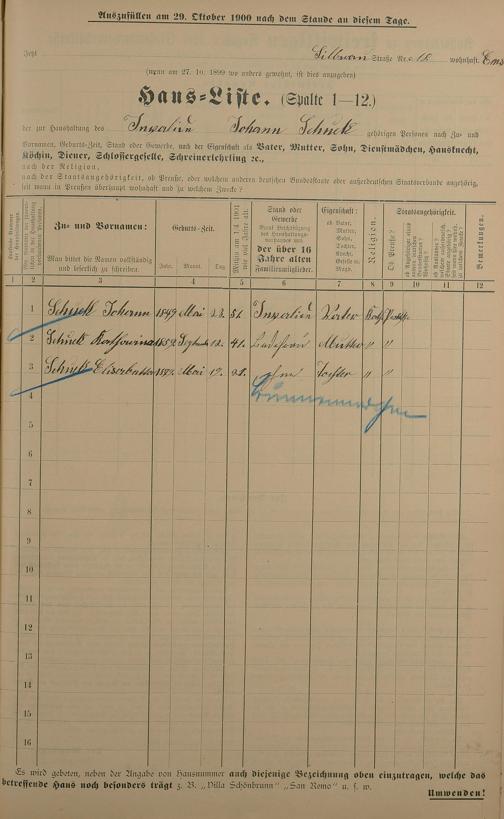 Auszufüllen am 29. Oktober 1900 nach dem Stande an diesem Tage.
Jetzt Silbernau Straße Nr. 18 wohnhaft. Ems
(wenn am 27. 10. 1899 wo anders gewohnt, ist dies anzugeben)
Haus-Liste. (Spalte 1—12.)
der zur Haushaltung des Invalide Johann Schuck gehörigen Personen nach Zu- und
Vornamen, Geburts-Zeit, Stand oder Gewerbe, nach der Eigenschaft als Vater, Mutter, Sohn, Dienstmädchen, Hausknecht,
Köchin, Diener, Schlossergeselle, Schreinerlehrling ꝛc.,
nach der Religion,
nach der Staatsangehörigkeit, ob Preuße, oder welchem anderen deutschen Bundesstaate oder außerdeutschen Staatsverbande angehörig,
seit wann in Preußen überhaupt wohnhaft und zu welchem Zwecke?
Zu- und Vornamen:
Man bittet die Namen vollständig
und leserlich zu schreiben.
Geburts-Zeit.
Jahr. Monat. Tag.
Mithin am 1./4. 1901
wie viel Jahre alt.
Stand oder
Gewerbe
der über 16
Jahre alten
Familienmitglieder.
Eigenschaft:
ob Vater,
Mutter,
Sohn,
Tochter,
Knecht,
Geselle u.
Magd.
Religion.
Staatsangehörigkeit.
Ob Preuße?
Bemerkungen.
1 2 3 4 5 6 7 8 9 10 11 12
1 Schuck Johann 1849 Mai 23. 51. Invalide Vater
2 Schuck 1859 12. 41. Mutter " "
3 Schuck Elisabetha Mai 19. 21. ohne Tochter " "
4
5
6
7
8
9
10
11
12
13
14
15
16
Es wird gebeten, neben der Angabe von Hausnummer auch diejenige Bezeichnung oben einzutragen, welche das
betreffende Haus noch besonders trägt z. B. „Villa Schönbrunn" „San Remo" u. s. w.
Umwenden!